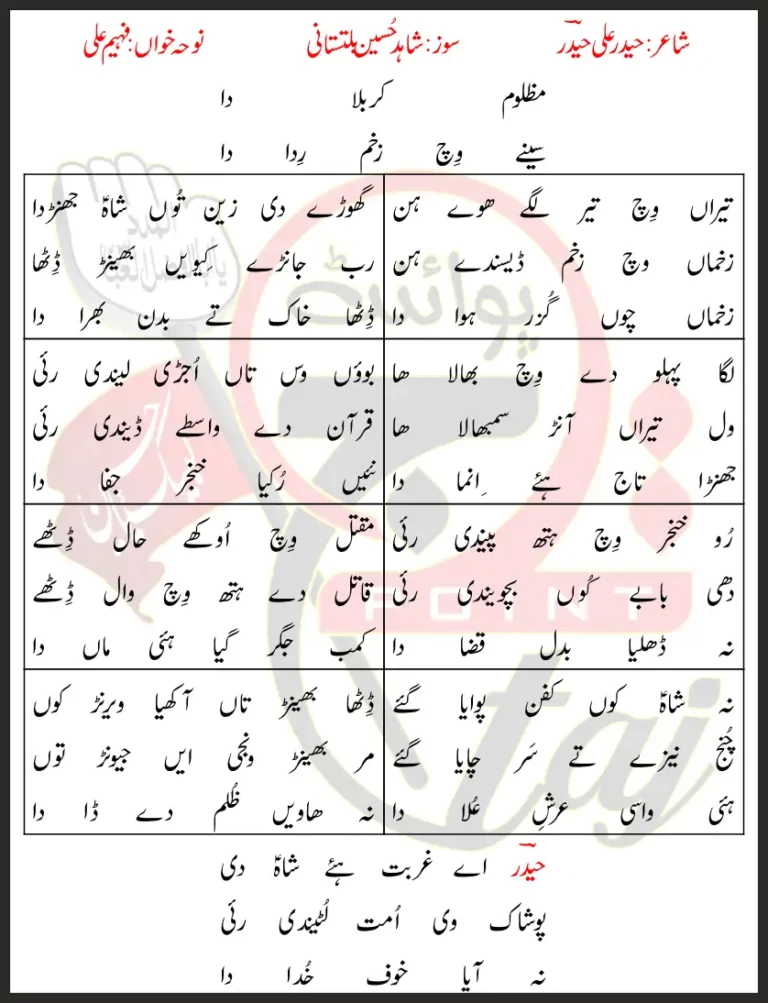 شاعر: حیدر علی حیدرؔ سوز: شاہد حُسین بلتستانی نوحہ خواں: فہیم علی
مظلوم کربلا دا
سینے وِچ زخم رِدا دا
تیراں وِچ تیر لگے ھوے ہن
زخماں وچ زخم ڈیسندے ہن
زخماں چوں گُزر ہوا دا
گھوڑے دی زین تُوں شاہؑ جھنڑدا
رب جانڑے کِیویں بھینڑ ڈِٹھا
ڈِٹھا خاک تے بدن بھرا دا
لگا پہلو دے وِچ بھالا ھا
ول تیراں آنڑ سمبھالا ھا
جھنڑا تاج ہئے اِنما دا
بوؤں وس تاں اُجڑی لیندی رئی
قرآن دے واسطے ڈیندی رئی
نئیں رُکیا خنجر جفا دا
رُو خنجر وِچ ہتھ پیندی رئی
دھی بابے کُوں بچویندی رئی
نہ ڈھلیا بدل قضا دا
مقتل وِچ اُوکھے حال ڈِٹھے
قاتل دے ہتھ وِچ وال ڈِٹھے
کمب جگر گیا ہئی ماں دا
نہ شاہؑ کوں کفن پوایا گئے
چُنج نیزے تے سَر چایا گئے
ہئی واسی عرشِ عُلا دا
ڈِٹھا بھینڑ تاں آکھیا ویرنڑ کوں
مر بھینڑ ونجی ایں جیونڑ توں
نہ ھاویں ظُلم دے ڈا دا
حیدرؔ اے غربت ہئے شاہؑ دی
پوشاک وی اُمت لُٹیندی رئی
نہ آیا خوف خُدا دا
پوائنٹ
POINT
taj